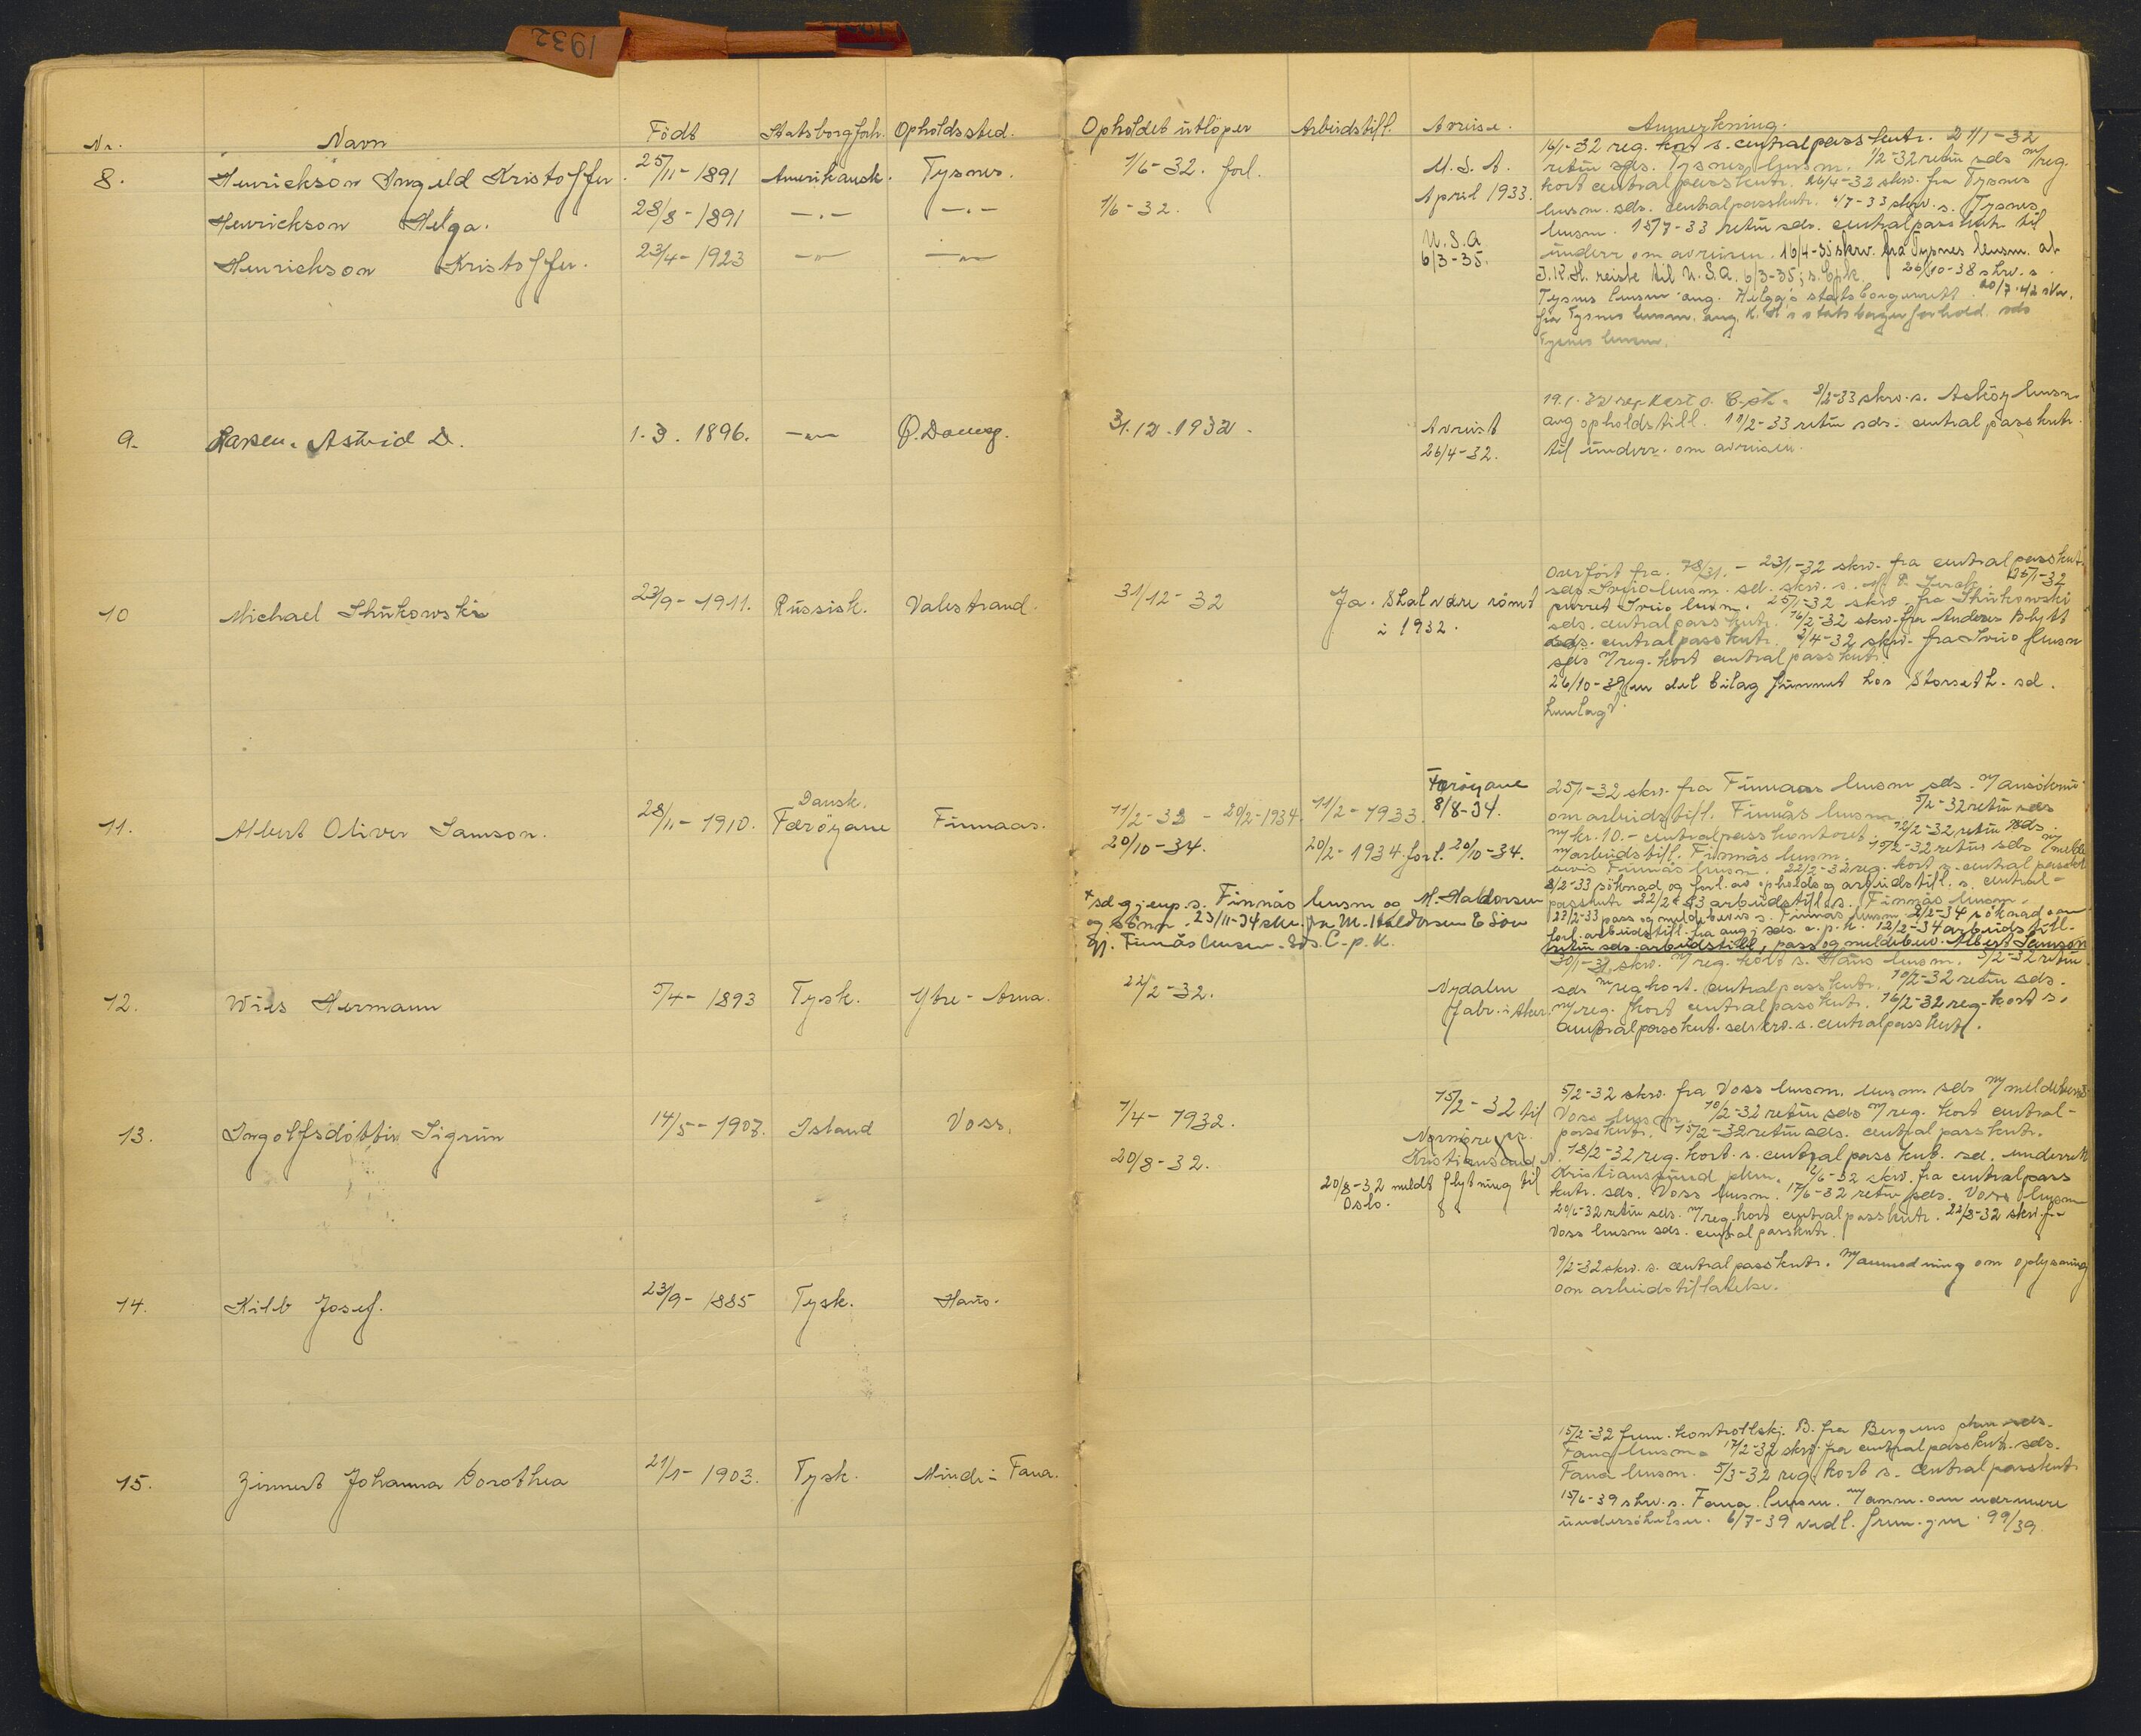 1932
Nr. Navn Födt Statsborgforh. Opholdssted. Opholdet utlöper Arbeidstill. Avreise. Anmerkning.
8. Henrickson Ingeld Kristoffer. 25/11-1891 Amerikansk. Tysnes. 1/6-32. forl. U.S.A. April 1933.
Henrickson Helga. 28/8-1891 -„- -„- 1/6-32.
Henrickson Kristoffer. 23/4-1923 -„- -„- U.S.A. 6/3-35.
16/1-32 reg. kort s. centralpasskntr. 21/1-32
retur sds. Tysnes lensm. 1/2-32 retur sds m/reg.
kort centralpasskntr. 26/4-32 skrv. fra Tysnes
lensm. sds. centralpasskntr. 4/7-33 skrv. s. Tysnes
lensm. 15/7-33 retur sds. centralpasskntr til
underr. om avreisen. 16/4-35 skrv. fra Tysnes lensm. at
I.K.H. reiste til U.S.A. 6/3-35; s. Cpk. 26/10-38 skrv. s.
Tysnes lensm ang. Helga's statsborgerrett. 20/7-42 skr.
fra Tysnes lensm. ang. K. H's statsborgerforhold. sds
Tysnes lensm.
9. Larsen. Astrid D. 1.3.1896. -„- Ö. Davesg. 31.12.1932. Avreist 26/4-32.
19.1.32 reg kort s. C.pk. 8/2-33 skrv. s. Asköy lensm
avg opholdstill. 11/2-33 retur sds. central passkntr.
til underr. om avreisen.
10 Michael Shukowski 23/9-1911. Russisk. Valestrand. 31/12-32 Ja. Skal være römt i 1932.
Overfört fra. 78/31. - 23/1-32 skrv. fra centralpasskntr
sds Sveio lensm. sd. skrv. s. 25/1-32
purret Sveio lensm. 25/1-32 skrv. fra Shukowski
sds. centralpasskntr. 16/2-32 skrv. fra Anders Blytt
sds. centralpasskntr. 2/4-32 skrv. fra Sveio lensm
sds m/reg. kort centralpasskntr.
26/10-39 en del bilag funnet hos Storseth. sd.
henlagt.
11. Albert Oliver Samson. 28/11-1910. Dansk. Færöyane Finnaas. 11/2-33 - 20/2-1934. 11/2-1933. Færöyane 8/8-34.
20/10-34. 20/2-1934 forl. 20/10-34.
x sd gjenp. s. Finnås lensm og M. Haldorsen
og sönn. 23/11-34 skr. fra M. Haldorsen & Sön
gj. Finnås lensm. Sds. C.p.K.
25/1-32 skrv. fra Finnaas lensm sds. m/ansökning
om arbeidstill. Finnås lensm. 5/2-32 retur sds
m/kr. 10.- centralpasskontoret. 12/2-32 retur sds.
m/arbeidstill. Finnås lensm. 15/2-32 retur sds m/melde
bevis Finnås lensm. 22/2-32 reg. kort s. central passkt
8/2-33 söknad og forl. av opholds og arbeidstill. s. central-
passkntr 22/2-33 arbeidstill s. Finnås lensm.
23/2-33 pass og meldebevis s. Finnås lensm. 2/2-34 söknad om
forl. arbeidstill. fra ang; sds c.p.k. 12/2-34 arbeidstill.
retur sds. arbeidstill, pass og meldebev. Albert Samson
12. Wies Hermann 5/4-1893 Tysk. Ytre-Arna. 22/2-32. Nydalen fabr. i Aker.
30/1-32 skrv. m/reg. kort s. Haus lensm. 5/2-32 retur
sds m/reg kort. centralpasskntr. 10/2-32 retur sds.
m/reg. kort centralpasskntr. 16/2-32 reg-kort s.
centralpasskntr. sd skrv. s. centralpasskntr.
13. Ingolfsdóttir Sigrún 14/5-1907. Island Voss. 1/4-1932. 15/2-32 til
Normöre pr. Kristiansund N.
20/8-32. 20/8-32 meldt flytning til Oslo.
5/2-32 skrv. fra Voss lensm. lensm. sds m/meldebevis
Voss lensm. 10/2-32 retur sds m/reg. kort central-
passkntr. 15/2-32 retur sds. central passkntr.
18/2-32 reg. kort. s. centralpasskntr. sd. underrett
Kristiansund plm. 2/6-32 skrv. fra centralpass
kntr. sds. Voss lensm. 17/6-32 retur sds. Voss lensm
20/6-32 retur sds. m/reg. kort centralpasskntr. 22/8-32 skrv. fra
Voss lensm sds. centralpasskntr.
14. Kilb Josef. 23/9-1885 Tysk. Haus.
9/2-32 skrv. s. centralpasskntr. m/anmodning om oplysning
om arbeidstillatelse.
15. Zinnert Johanna Dorothea 21/1-1903. Tysk. Minde i Fana.
15/2-32 frem. kontrollskj. B. fra Bergens plm sds.
Fana lensm. 17/2-32 skrv. fra centralpasskntr. sds.
Fana lensm. 5/3-32 reg. kort s. centralpasskntr
15/6-39 skrv. s. Fana lensm. m/anm. om nærmere
undersökelser. 6/7-39 vedl. frem. j.nr. 99/39.